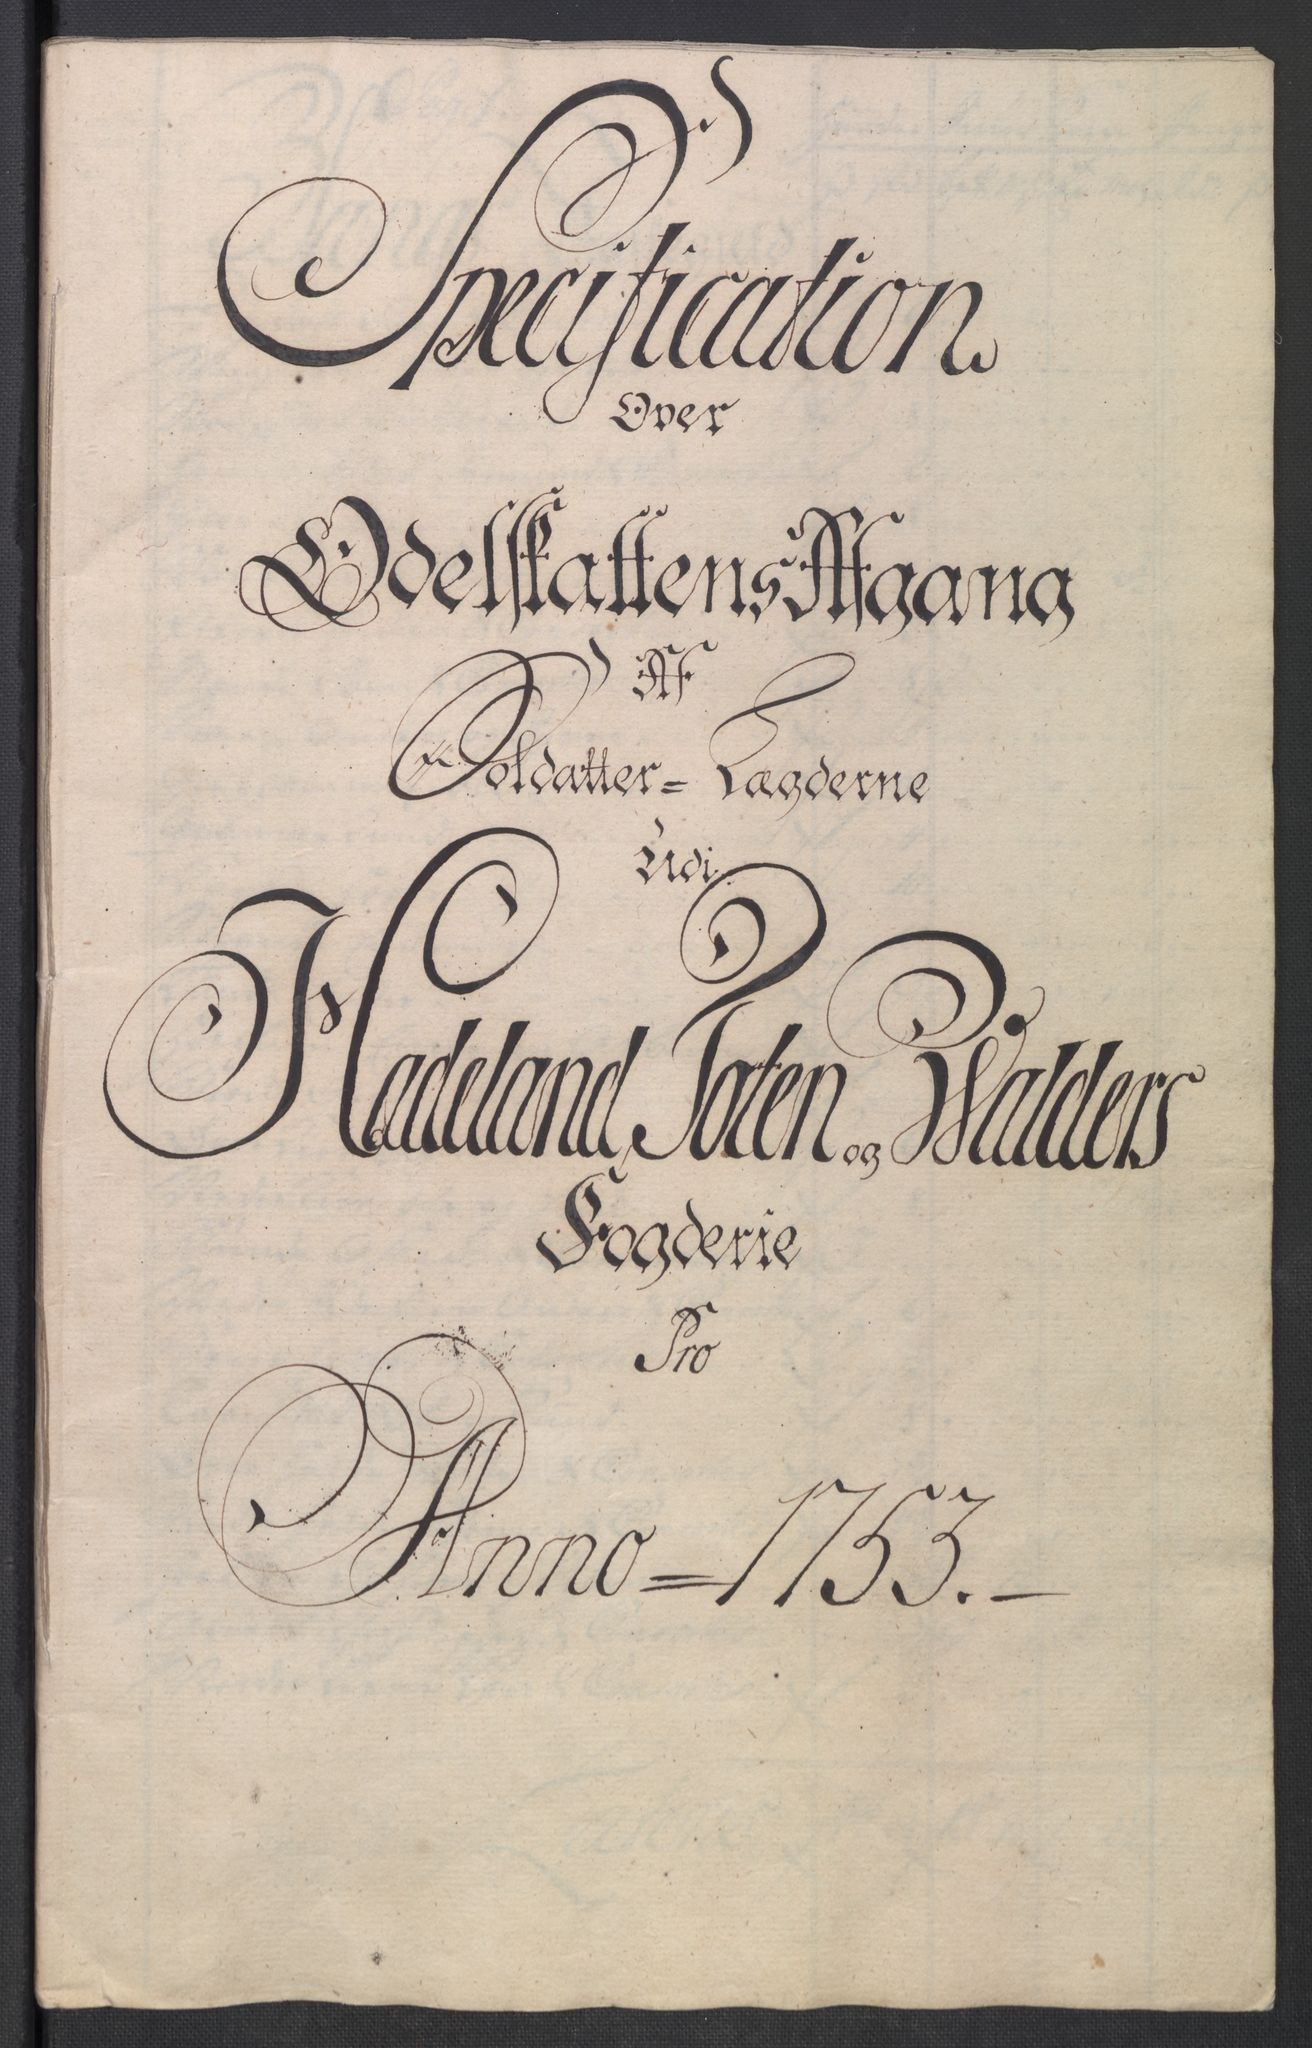 Specification
Over
Odelskattens Afgang
Af
Soldatter= Lægderne
Udi
Hadeland, Toten og Walders
Fogderie
Pro
Anno = 1753. –